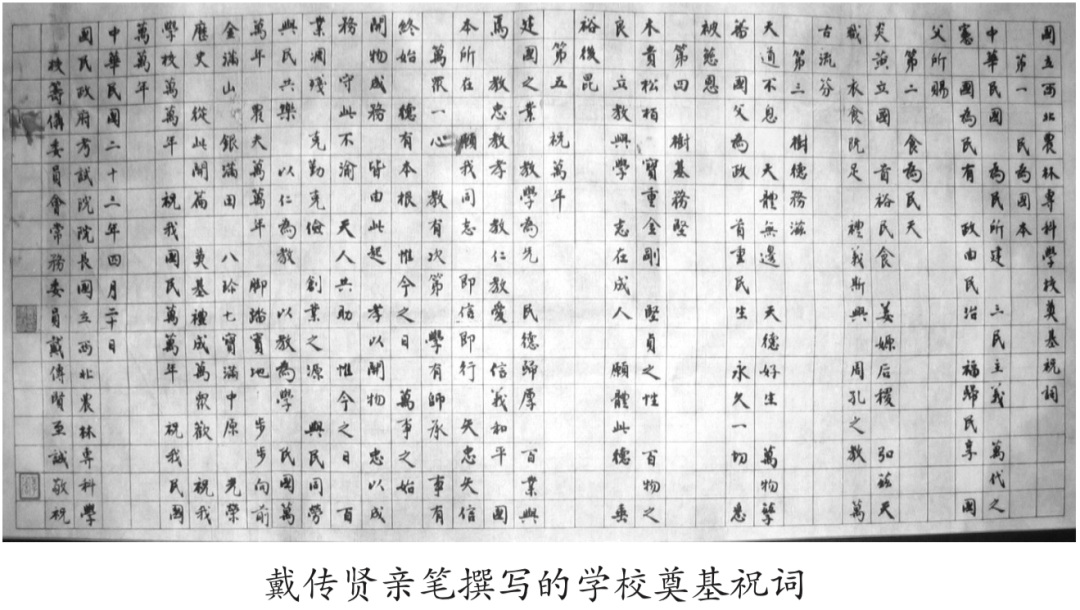 國立西北農林專科學校奠基祝詞
第一 民為國本
中華民國 為民所建 三民主義 萬代之
憲 國為民有 政由民治 福歸民享 國
父所賜
第二 食為民天
炎黃立國 首裕民食 姜嫄后稷 弘茲天
職 衣食既足 禮義斯興 周孔之教 萬
古流芬
第三 樹德務滋
天道不息 天體無邊 天德好生 萬物孳
蕃 國父為政 首重民生 永久一切 悉
被慈恩
第四 樹基務堅
木貴松柏 寶重金剛 堅貞之性 百物之
良 立教興學 志在成人 願體此德 垂
裕後昆
第五 祝萬年
建國之業 教學為先 民德歸厚 百業興
焉 教忠教孝 教仁教愛 信義和平 國
本所在 願我同志 即信即行 矢忠矢信
萬眾一心 教有次第 學有師承 事有
終始 德有本根 惟今之日 萬事之始
開物成務 皆由此起 孝以開物 忠以成
務 守此不渝 天人共助 惟今之日 百
業凋殘 克勤克儉 創業之源 與民同勞
與民共樂 以仁為教 以教為學 民國萬
萬年 農夫萬萬年 腳踏實地 步步向前
金滿山 銀滿田 八珍七寶滿中原 光榮
歷史 從此開篇 奠基禮成萬眾歡 祝我
學校萬萬年 祝我國民萬萬年 祝我民國
萬萬年
中華民國二十三年四月二十日
國民政府考試院院長國立西北農林專科學
校籌備委員會常務委員戴傳賢至誠敬祝
戴传贤亲笔撰写的学校奠基祝词